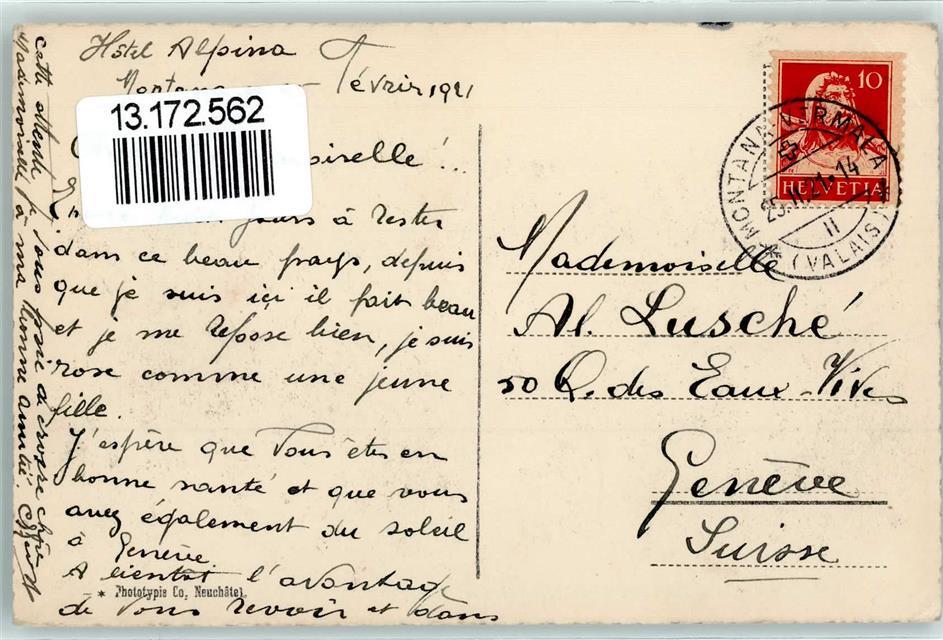 Hôtel Alpina
Février 1921
13.172.562
jours à rester
dans ce beau pays, depuis
que je suis içi il fait beau
et je me repose bien, je suis
rose comme une jeune
fille.
J'espère que vous êtes en
bonne santé et que vous
avez également du soleil
à Genève
A bientot l'avantage
de vous revoir et dans
cette attente je vous prie de croire chère
Mademoiselle à ma bonne amitié.
* Phototypie Co, Neuchâtel
10
HELVETIA
MONTANA-VERMALA
25.II.21-14
II
* (VALAIS) *
Mademoiselle
Al. Lusché
50 Q. des Eaux-Vives
Genève
Suisse